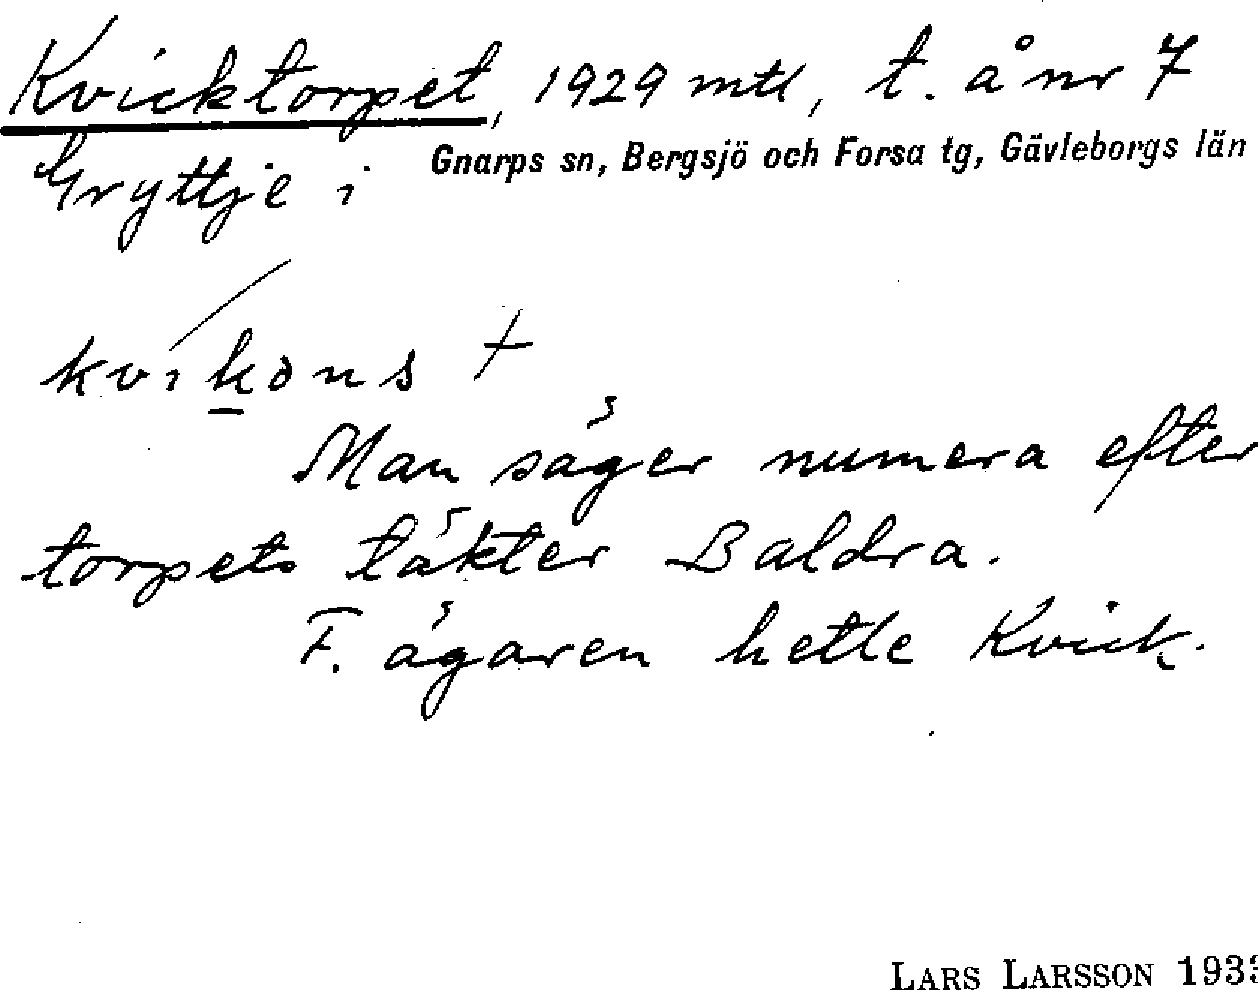 Kvicktorpet, 1929 mtl, t. å nr 7
Gryttje i Gnarps sn, Bergsjö och Forsa tg, Gävleborgs län
kvikons +
Man säger numera efter
torpets täkter Baldra.
F. ägaren hette Kvick.
LARS LARSSON 193